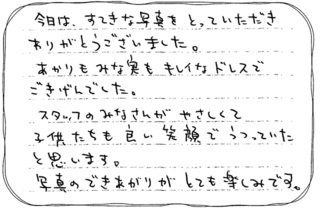 今日は、すてきな写真をとっていただき
ありがとうございました。
あかりもみな実もキレイなドレスで
ごきげんでした。
スタッフのみなさんがやさしくて
子供たちも良い笑顔でうつっていた
と思います。
写真のできあがりがとても楽しみです。